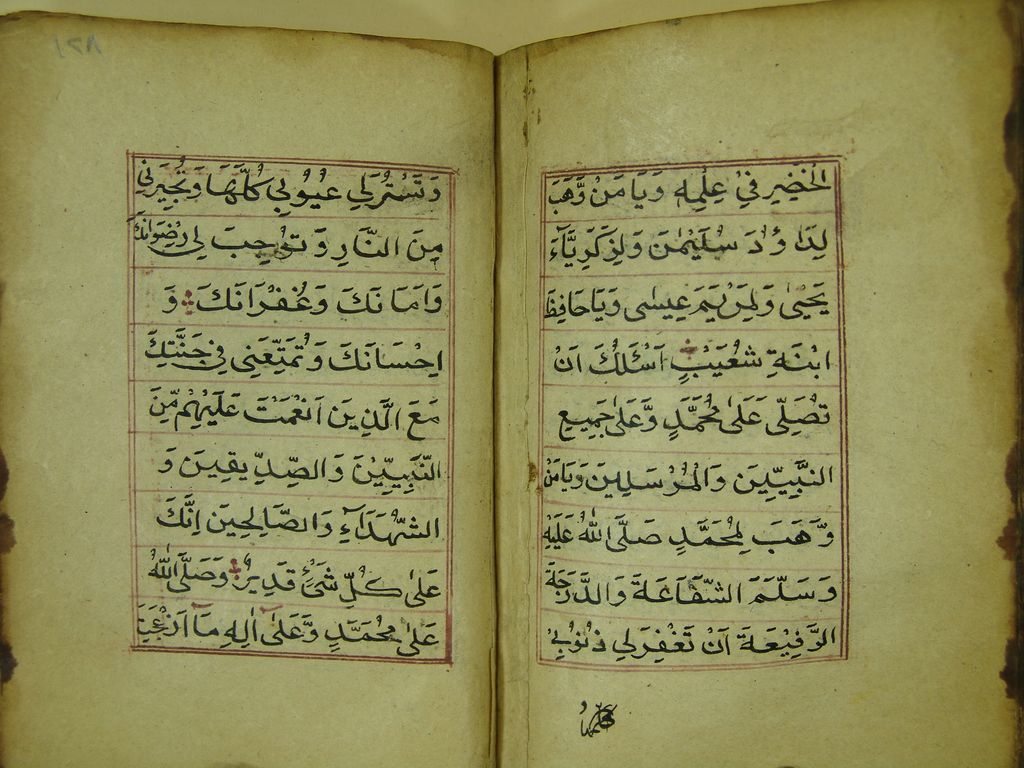 الْخَضِرِ فِيْ عِلْمِهٖ وَيَا مَنْ وَّهَبَ
لِدَاوٗدَ سُلَيْمٰنَ وَلِزَكَرِيَّآءَ
يَحْيٰى وَلِمَرْيَمَ عِيسٰى وَيَا حَافِظَ
ابْنَةِ شُعَيْبٍ اَسْئَلُكَ اَنْ
تُصَلِّىَ عَلٰى مُحَمَّدٍ وَّعَلٰى جَمِيعِ
النَّبِيِّينَ وَالْمُرْسَلِينَ وَيَا مَنْ
وَّهَبَ لِمُحَمَّدٍ صَلَّى اللّٰهُ عَلَيْهِ
وَسَلَّمَ الشَّفَاعَةَ وَالدَّرَجَةَ
الرَّفِيْعَةَ اَنْ تَغْفِرَلِي ذُنُوْبِيْ
كُلَّهَا
١٢٨
وَتَسْتُرَلِي عُيُوْبِي كُلَّهَا وَتُجِيْرَنِيْ
مِنَ النَّارِ وَتُوْجِبَ لِي رِضْوَانَكَ
وَاَمَانَكَ وَغُفْرَانَكَ وَ
اِحْسَانَكَ وَتُمَتِّعَنِي فِي جَنَّتِكَ
مَعَ الَّذِينَ اَنْعَمْتَ عَلَيْهِمْ مِّنَ
النَّبِيِّيْنَ وَالصِّدِّيقِينَ وَ
الشُّهَدَآءِ وَالصَّالِحِينَ اِنَّكَ
عَلٰى كُلِّ شَىْءٍ قَدِيرٌ وَصَلَّى اللّٰهُ
عَلٰى مُحَمَّدٍ وَّعَلٰى اٰلِهِ مَا